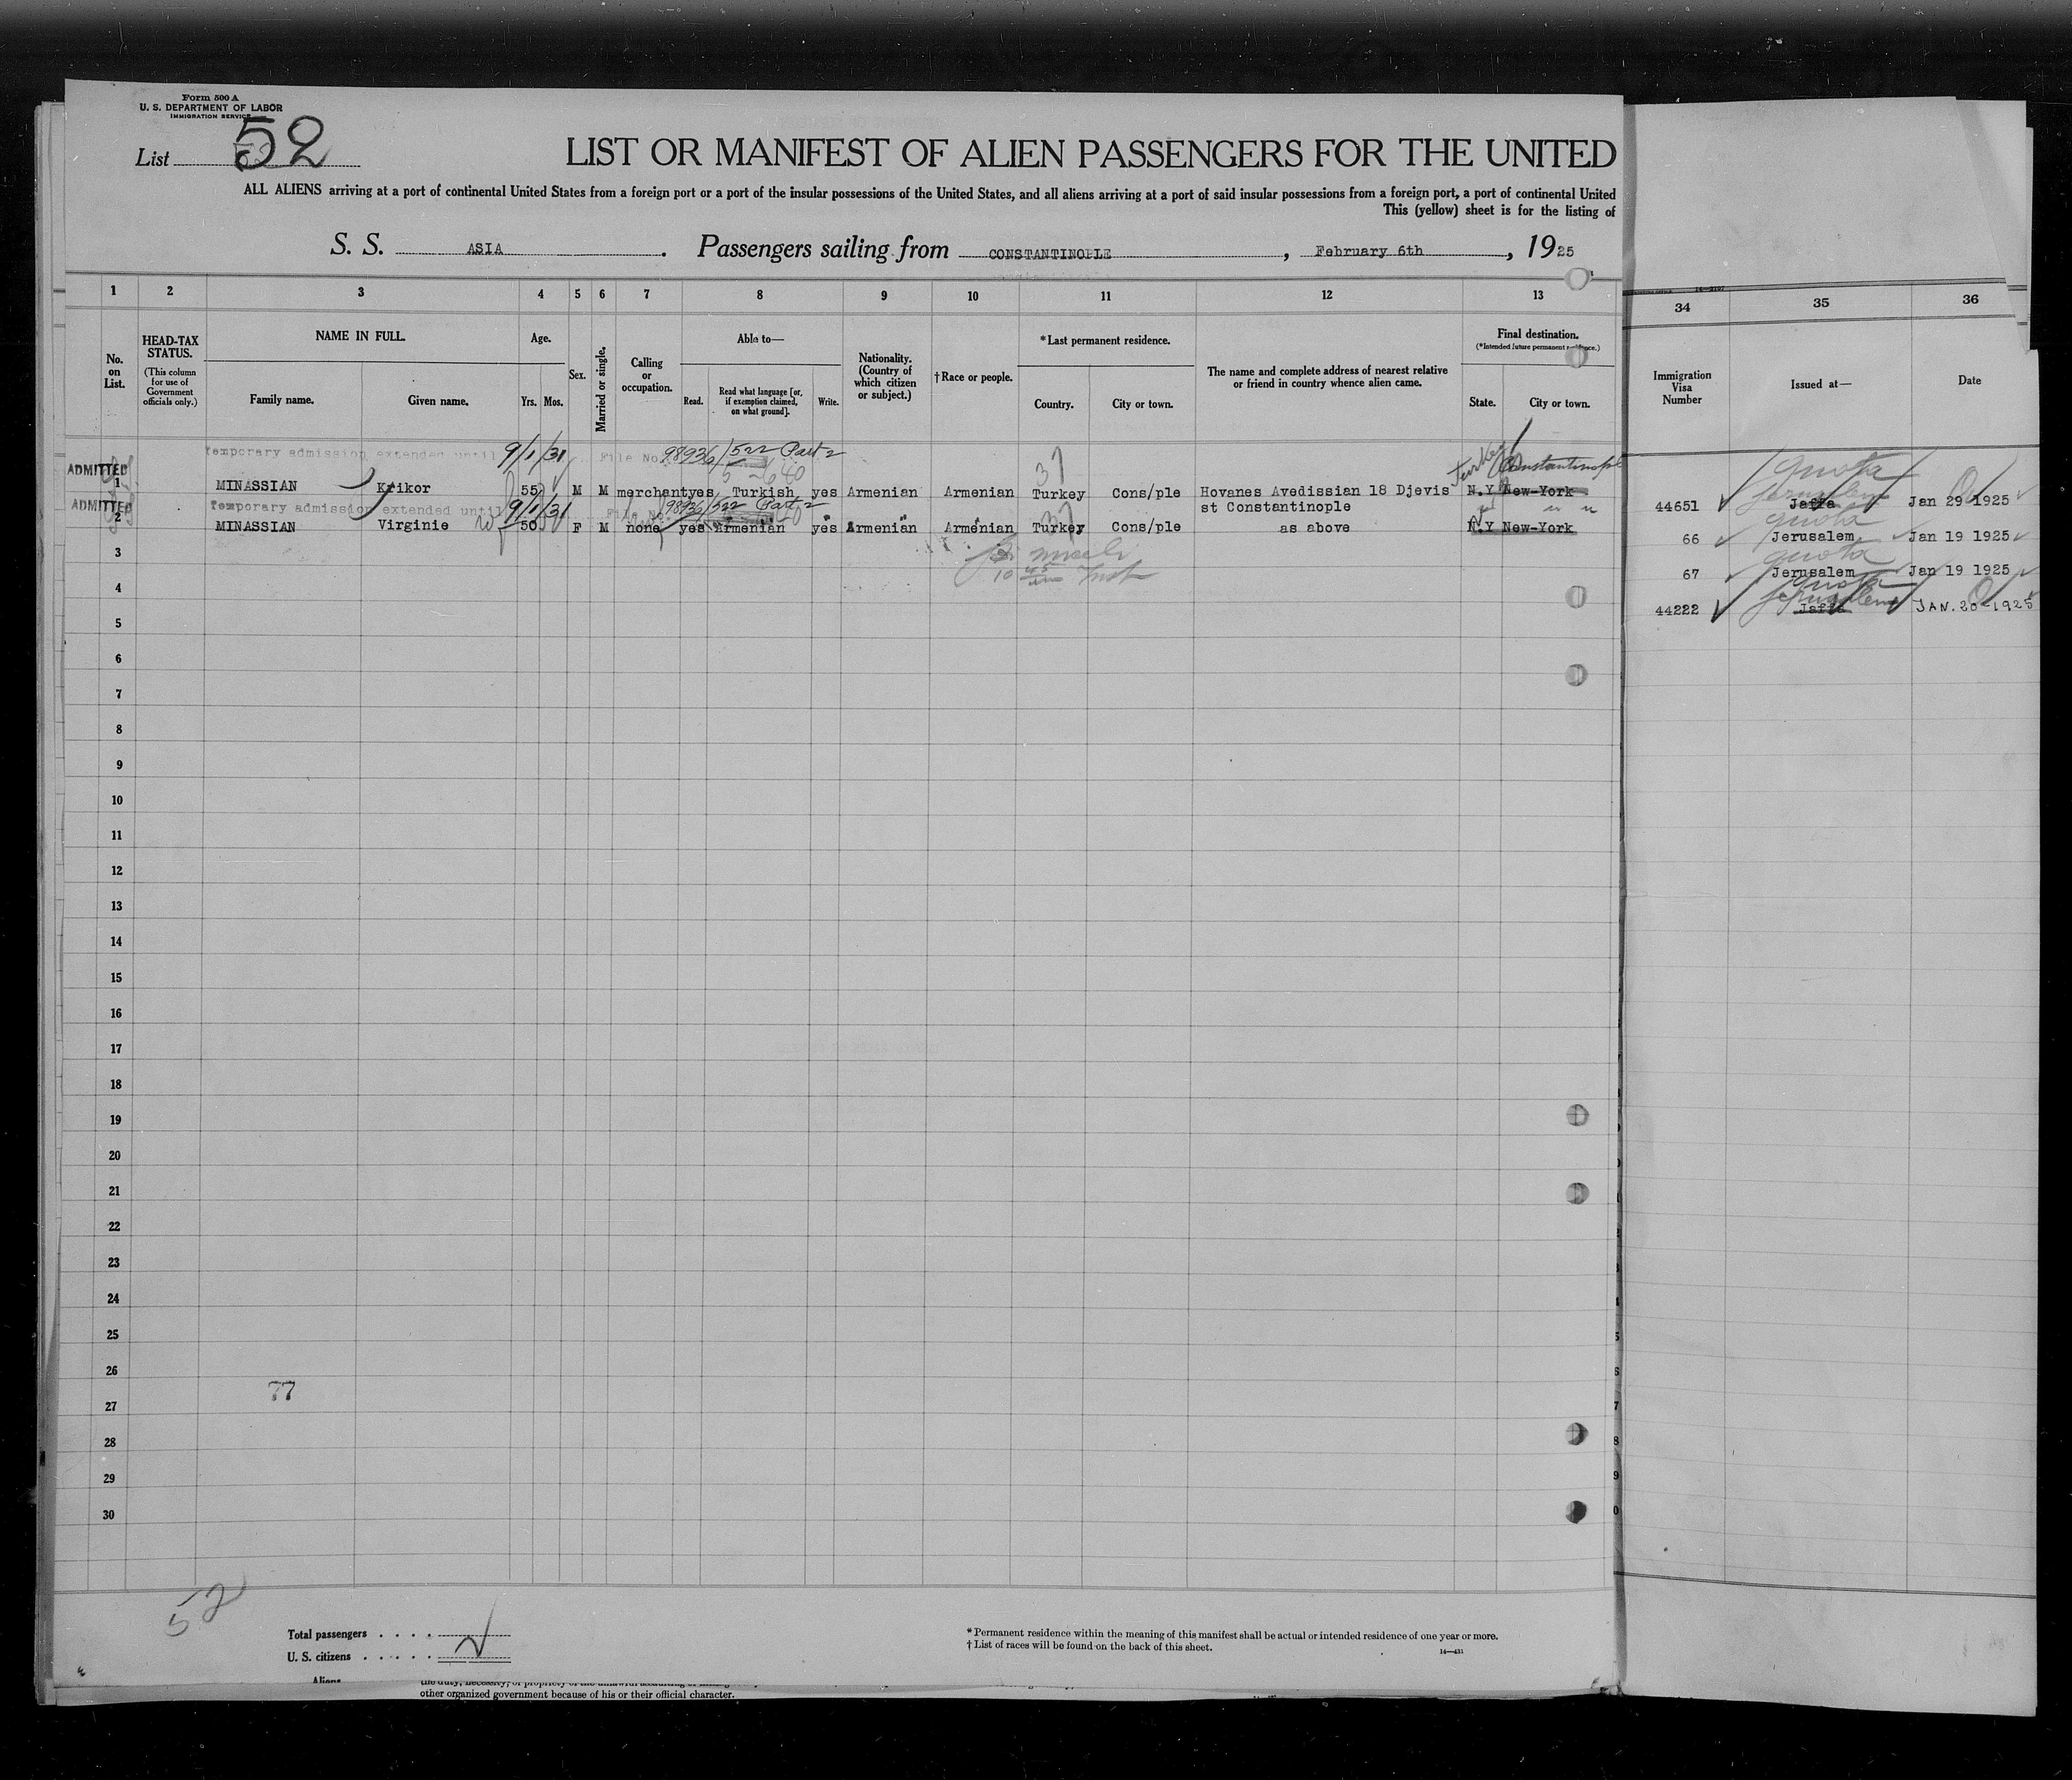 Form 500 A
U. S. DEPARTMENT OF LABOR
IMMIGRATION SERVICE
List 52
LIST OR MANIFEST OF ALIEN PASSENGERS FOR THE UNITED
ALL ALIENS arriving at a port of continental United States from a foreign port or a port of the insular possessions of the United States, and all aliens arriving at a port of said insular possessions from a foreign port, a port of continental United
This (yellow) sheet is for the listing of
S. S. ASIA. Passengers sailing from CONSTANTINOPLE, February 6th, 1925
1 2 3 4 5 6 7 8 9 10 11 12 13
34 35 36
No. on List.
HEAD-TAX STATUS.
(This column for use of Government officials only.)
NAME IN FULL.
Family name. Given name.
Age.
Yrs. Mos.
Sex.
Married or single.
Calling or occupation.
Able to—
Read. Read what language [or, if exemption claimed, on what ground]. Write.
Nationality. (Country of which citizen or subject.)
†Race or people.
*Last permanent residence.
Country. City or town.
The name and complete address of nearest relative or friend in country whence alien came.
Final destination.
(*Intended future permanent residence.)
State. City or town.
Immigration Visa Number
Issued at—
Date
Temporary admission extended until 9/1/31 File No. 98936/522 Part 2
Turkey Constantinople
ADMITTED
1 MINASSIAN Krikor 55 M M merchant yes Turkish yes Armenian Armenian Turkey Cons/ple Hovanes Avedissian 18 Djevis N.Y New-York
37
st Constantinople
ADMITTED Temporary admission extended until 9/1/31 File No. 98936/522 Part 2
2 MINASSIAN Virginie 50 F M none yes Armenian yes Armenian Armenian Turkey Cons/ple as above N.Y New-York
37
quota
Jerusalem
44651 Jaffa Jan 29 1925
quota
66 Jerusalem Jan 19 1925
quota
67 Jerusalem Jan 19 1925
quota
Jerusalem
44222 Jaffa JAN. 20-1925
3
4
5
6
7
8
9
10
11
12
13
14
15
16
17
18
19
20
21
22
23
24
25
26
77
27
28
29
30
52
Total passengers . . . .
U. S. citizens . . . . .
Aliens
* Permanent residence within the meaning of this manifest shall be actual or intended residence of one year or more.
† List of races will be found on the back of this sheet.
14—431
other organized government because of his or their official character.